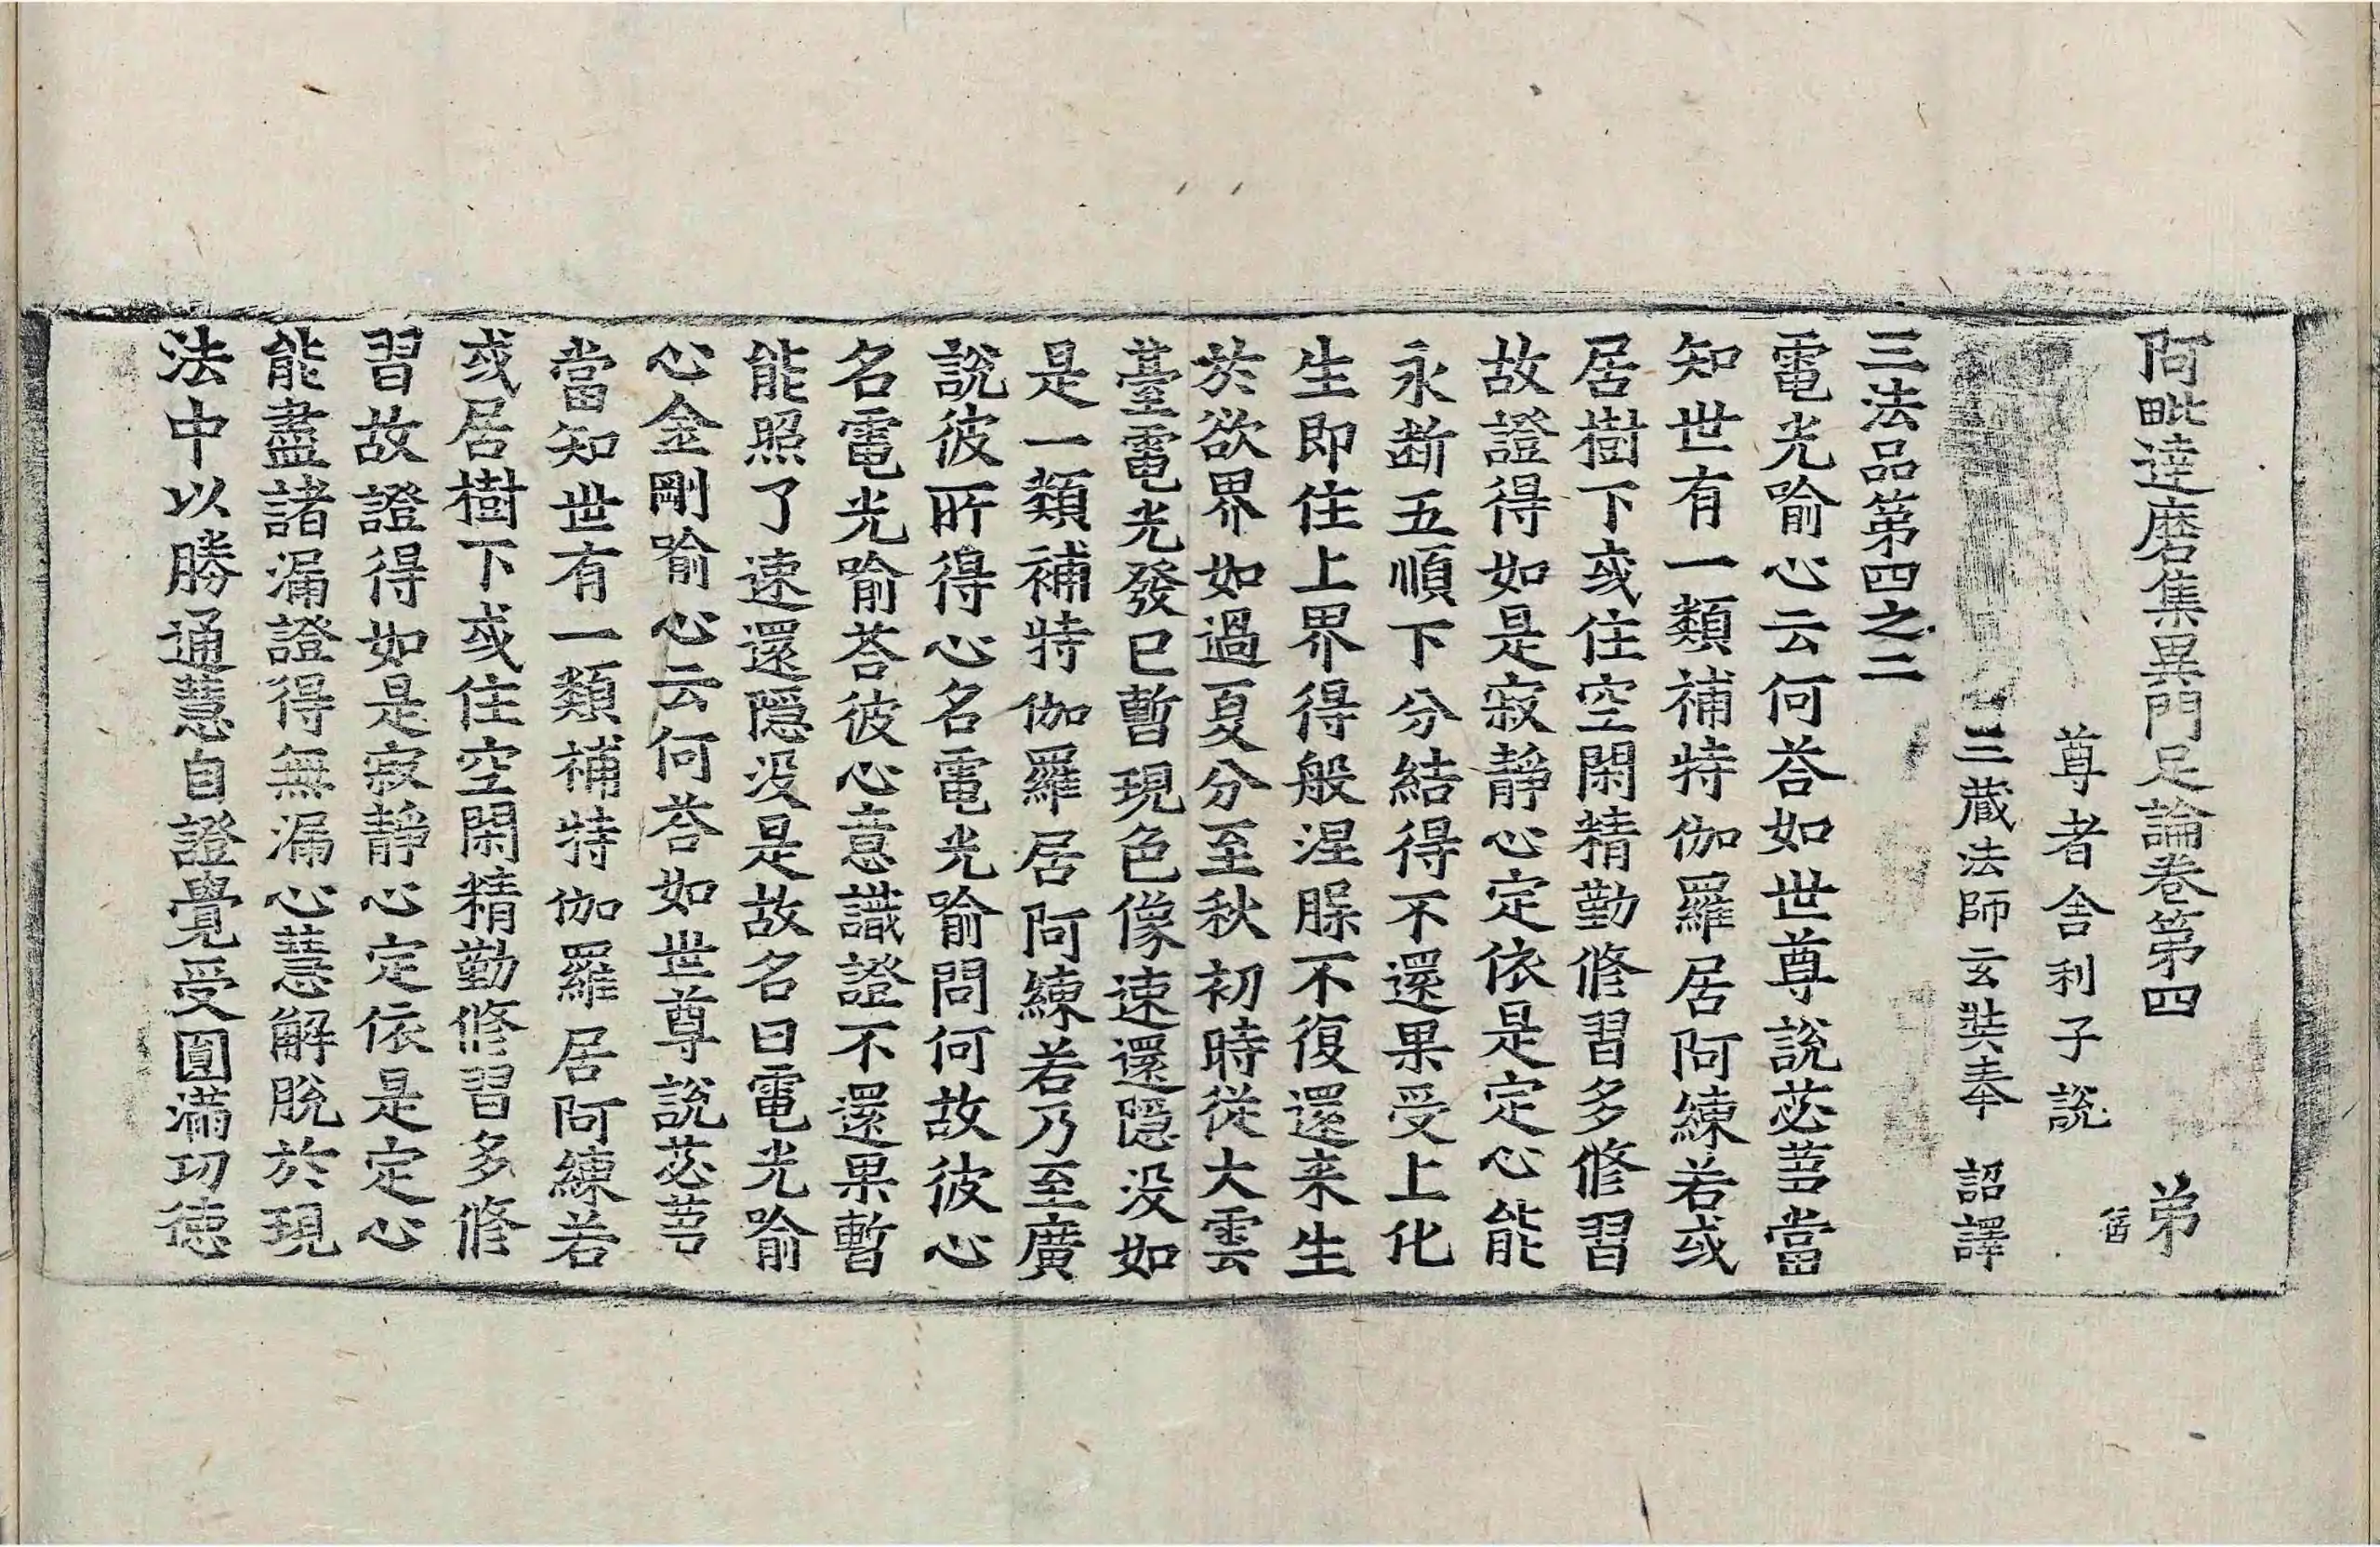 阿毗達磨集異門足論卷第四 弟
尊者舍利子說
三藏法師玄奘奉 詔譯
三法品第四之二
電光喻心云何荅如世尊說苾芻當
知世有一類補特伽羅居阿練若或
居樹下或住空閑精勤修習多修習
故證得如是寂靜心定依是定心能
永断五順下分結得不還果受上化
生即住上界得般涅槃不復還来生
於欲界如過夏分至秋初時從大雲
䑓電光發已暫現色像速還隱没如
是一類補特伽羅居阿練若乃至廣
說彼所得心名電光喻問何故彼心
名電光喻荅彼心意識證不還果暫
能照了速還隱没是故名曰電光喻
心金剛喻心云何荅如世尊說苾芻
當知世有一類補特伽羅居阿練若
或居樹下或住空閑精勤修習多修
習故證得如是寂靜心定依是定心
能盡諸漏證得無漏心慧解脫於現
法中以勝通慧自證覺受圓滿功德